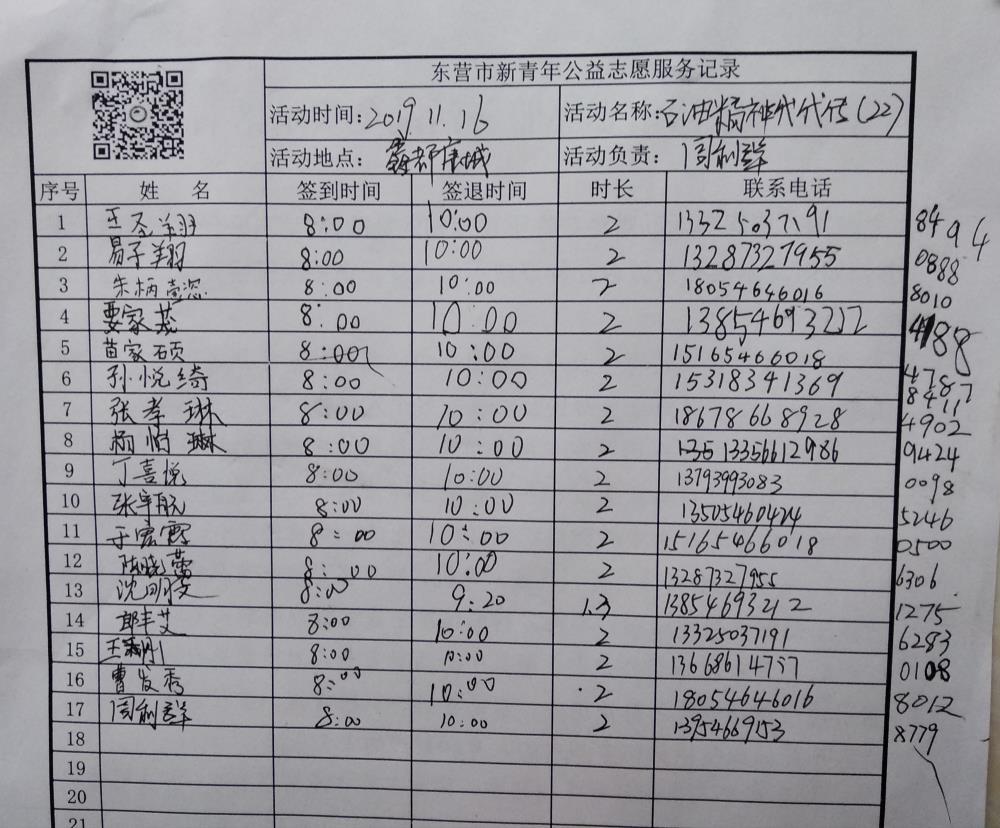 东营市新青年公益志愿服务记录
活动时间: 2019.11.16 活动名称: 石油精神代代传(22)
活动地点: 唐城 活动负责: 周利群
序号 姓 名 签到时间 签退时间 时长 联系电话
1 王圣翔 8:00 10:00 2 13325037191 8494
2 易子翔 8:00 10:00 2 13287327955 0888
3 朱炳 8:00 10:00 2 18054646016 8010
4 家 8:00 10:00 2 13854693212 4188
5 苗家硕 8:00 10:00 2 15165466018 4787
6 孙悦绮 8:00 10:00 2 15318341369 8411
7 张孝琳 8:00 10:00 2 18678668928 4902
8 杨怡琳 8:00 10:00 2 13513356612986 9424
9 丁喜悦 8:00 10:00 2 13793993083 0098
10 张 8:00 10:00 2 13505460424 5246
11 于宏霞 8:00 10:00 2 15165466018 0500
12 陈晓蕾 8:00 10:00 2 13287327955 6306
13 沈 8:00 9:20 1.3 13854693212 1275
14 郭丰艾 8:00 10:00 2 13325037191 6283
15 王 8:00 10:00 2 13668614757 0108
16 曹发秀 8:00 10:00 2 18054646016 8012
17 周利群 8:00 10:00 2 13954669153 8779
18
19
20
21